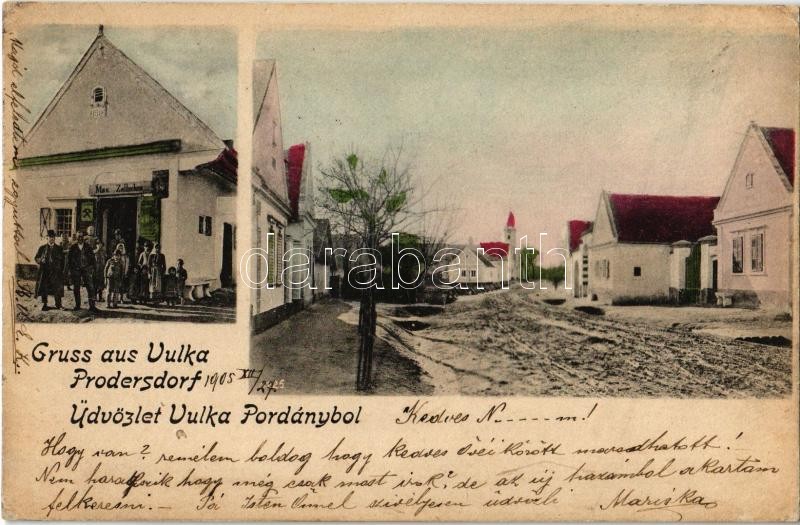 Max Zollschan
darabanth.com
Gruss aus Vulka
Prodersdorf 1905 XII/27
Üdvözlet Vulka Pordánybol
Kedves N-----m!
Hogy van? remélem boldog hogy kedves Övéi között maradhatott!
Nem haragszik hogy még csak most irok? de az új hazámbol akartam
felkeresni. - Pá Isten Önnel szivélyesen üdvözli Mariska